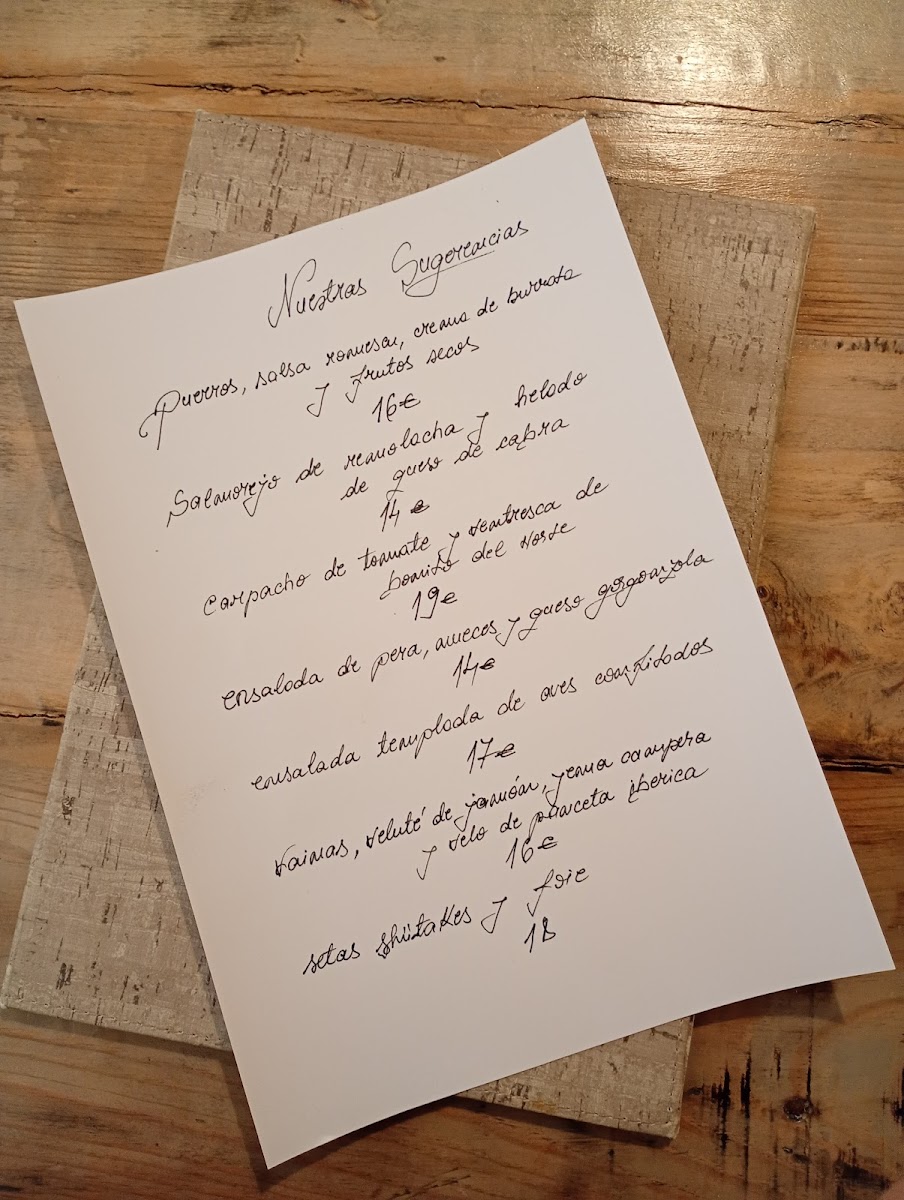 Nuestras Sugerencias
Puerros, salsa romescu, crema de burrata
y frutos secos
16€
Salmorejo de remolacha y helado
de queso de cabra
14€
Carpacho de tomate y ventresca de
bonito del Norte
19€
ensalada de pera, nueces y queso gorgonzola
14€
ensalada templada de aves confitados
17€
vainas, veluté de jamón, yema campera
y velo de panceta iberica
16€
setas shiitakes y foie
18